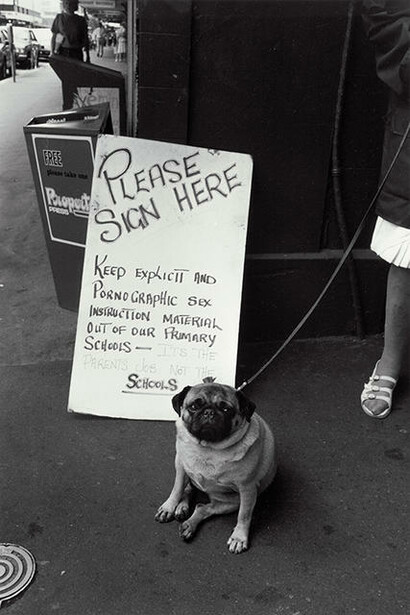 FREE
please take one
Property
PRESS
PLEASE
SIGN HERE
KEEP EXPLICIT AND
PORNOGRAPHIC SEX
INSTRUCTION MATERIAL
OUT OF OUR PRIMARY
SCHOOLS — IT'S THE
PARENTS JOB NOT THE
SCHOOLS